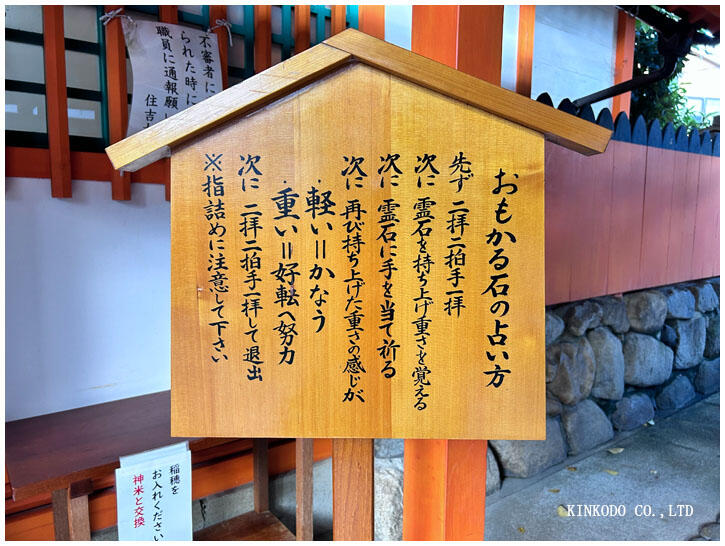 おもかる石の占い方
先ず 二拝二拍手一拝
次に 霊石を持ち上げ重さを覚える
次に 霊石に手を当て祈る
次に 再び持ち上げた重さの感じが
・軽い＝かなう
・重い＝好転へ努力
次に 二拝二拍手一拝して退出
※指詰めに注意して下さい
不審者に
られた時に
職員に通報願
住吉
稲穂を
お入れください
神米と交換
KINKODO CO.,LTD